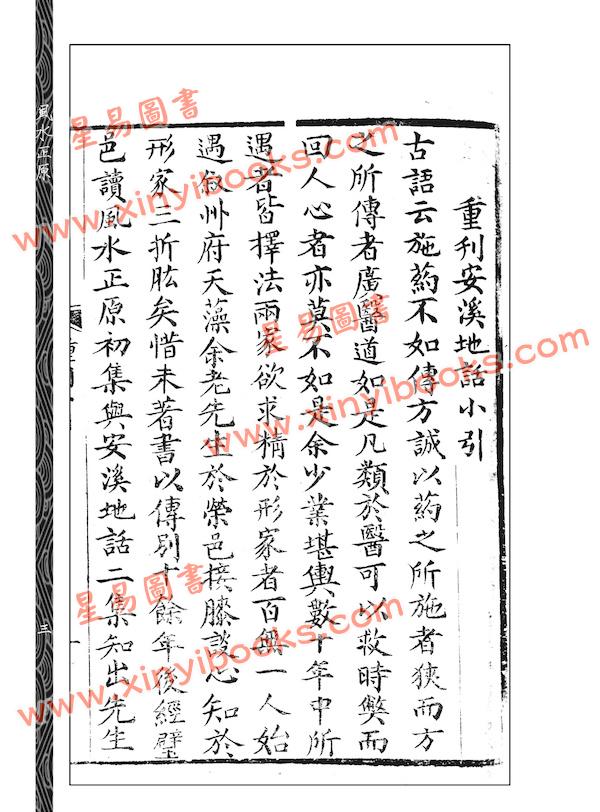 重刊安溪地話小引
古語云施葯不如傳方誠以葯之所施者狹而方
之所傳者廣醫道如是凡類於醫可以救時獘而
回人心者亦莫不如是余少業堪輿數十年中所
遇者皆擇法兩家欲求精於形家者百無一人始
遇敘州府天藻余老先生於榮邑接膝談心知於
形家三折肱矣惜未著書以傳別十餘年後經璧
邑讀風水正原初集與安溪地話二集知出先生
風水正原
三
星易圖書
www.xinyibooks.com
星易圖書
www.xinyibooks.com
星易圖書
www.xinyibooks.com